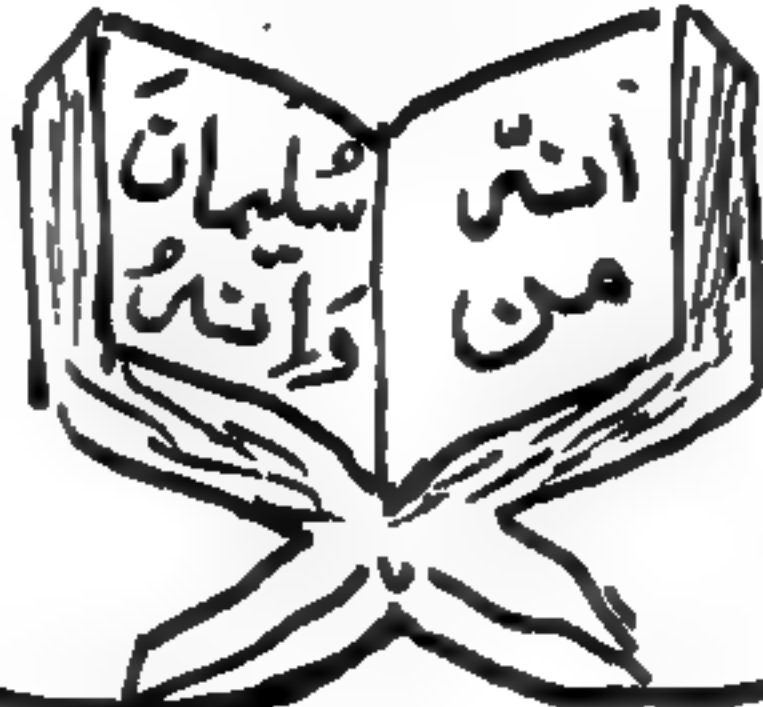 اَنّہ
من
سُلیمانَ
وَاِنّہُ